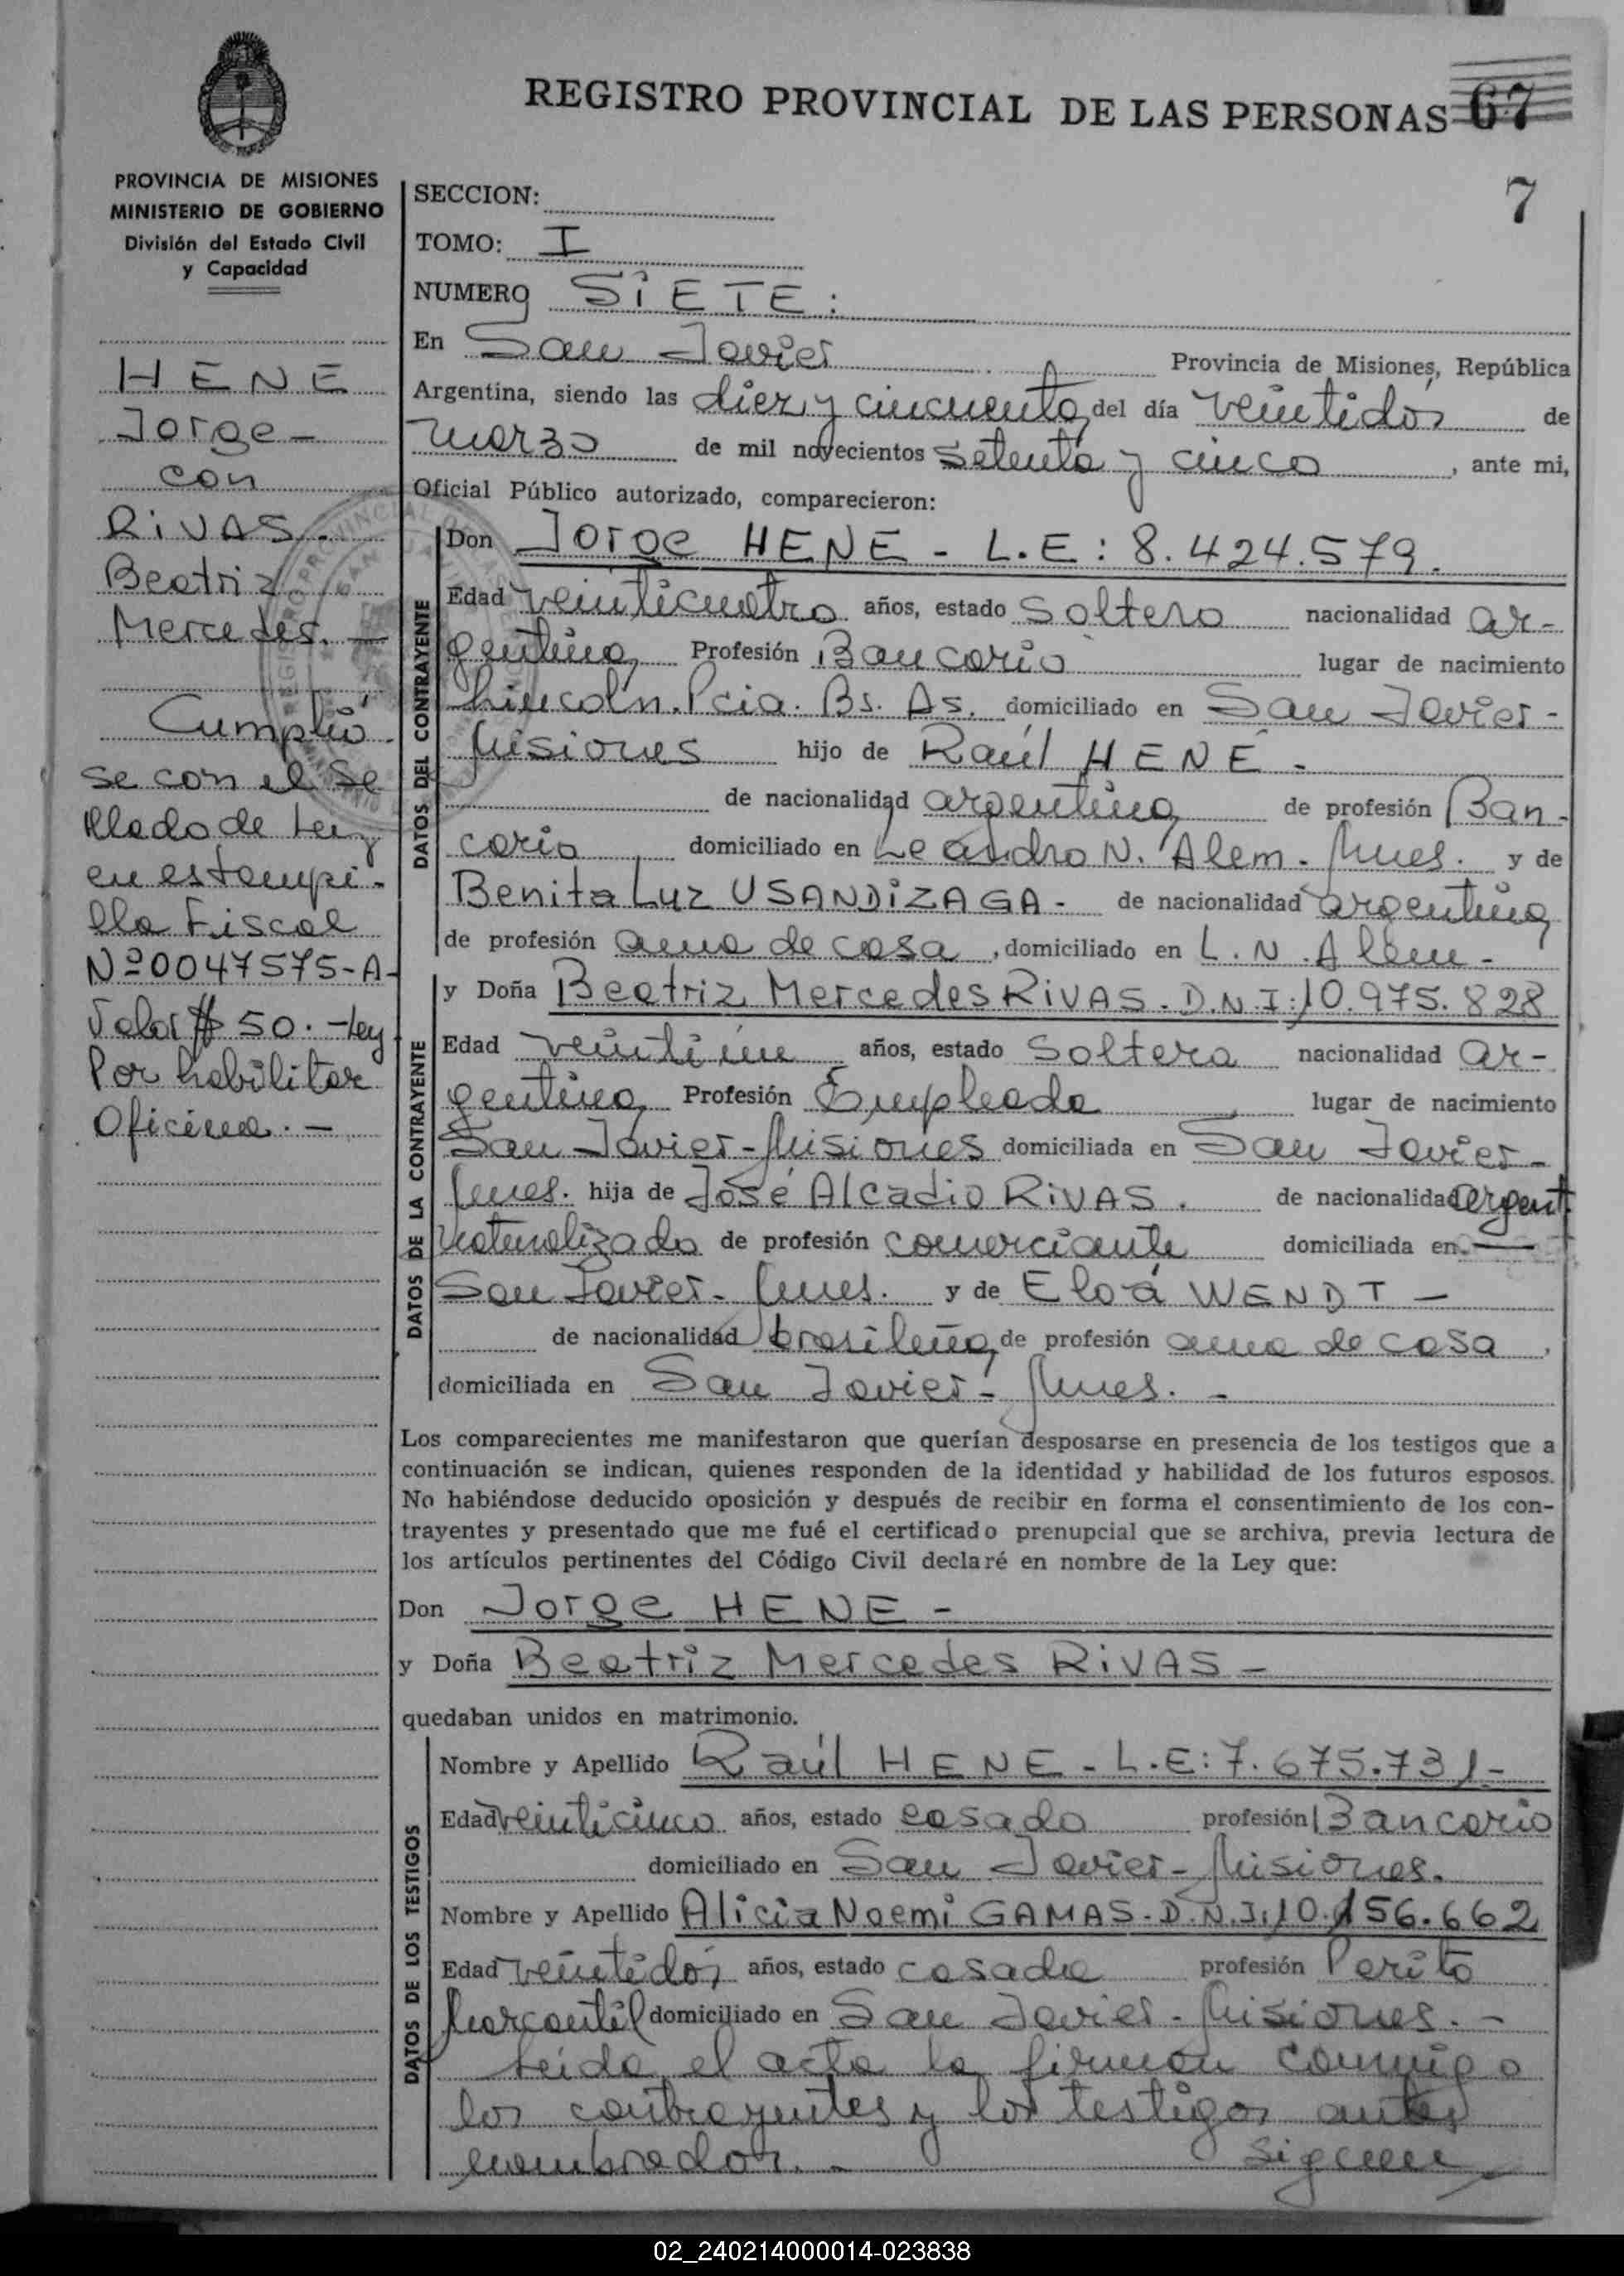 REGISTRO PROVINCIAL DE LAS PERSONAS 67
7
PROVINCIA DE MISIONES
MINISTERIO DE GOBIERNO
División del Estado Civil
y Capacidad
HENE
Jorge -
con
RIVAS.
Beatriz
Mercedes. -
Cumplió
se con el Se
llado de Ley
en estampi-
lla Fiscal
Nº 0047575-A-
Valor $ 50.- Ley
Por habilitar
Oficina. -
SECCION:
TOMO: I
NUMERO SIETE:
En San Javier Provincia de Misiones, República
Argentina, siendo las diez y cincuenta, del día veintidós de
marzo de mil novecientos setenta y cinco, ante mi,
Oficial Público autorizado, comparecieron:
DATOS DEL CONTRAYENTE
Don Jorge HENE - L.E: 8.424.579.
Edad veinticuatro años, estado soltero nacionalidad ar-
gentina, Profesión Bancario lugar de nacimiento
Lincoln. Pcia. Bs. As. domiciliado en San Javier -
Misiones hijo de Raúl HENE -
de nacionalidad argentina de profesión Ban-
cario domiciliado en Leandro N. Alem - Mnes. y de
Benita Luz USANDIZAGA - de nacionalidad argentina
de profesión ama de casa, domiciliado en L. N. Alem -
DATOS DE LA CONTRAYENTE
y Doña Beatriz Mercedes RIVAS. D.N.I: 10.975.828
Edad veintiún años, estado soltera nacionalidad ar-
gentina, Profesión Empleada lugar de nacimiento
San Javier - Misiones domiciliada en San Javier -
Mnes. hija de José Alcadio RIVAS. de nacionalidad argent.
Naturalizado de profesión comerciante domiciliada en -
San Javier - Mnes. y de Eloá WENDT -
de nacionalidad brasileña, de profesión ama de casa,
domiciliada en San Javier - Mnes. -
Los comparecientes me manifestaron que querían desposarse en presencia de los testigos que a
continuación se indican, quienes responden de la identidad y habilidad de los futuros esposos.
No habiéndose deducido oposición y después de recibir en forma el consentimiento de los con-
trayentes y presentado que me fué el certificado prenupcial que se archiva, previa lectura de
los artículos pertinentes del Código Civil declaré en nombre de la Ley que:
Don Jorge HENE -
y Doña Beatriz Mercedes RIVAS -
quedaban unidos en matrimonio.
DATOS DE LOS TESTIGOS
Nombre y Apellido Raúl HENE - L.E: 7.675.731-
Edad veinticinco años, estado casado profesión Bancario
domiciliado en San Javier - Misiones.
Nombre y Apellido Alicia Noemi GAMAS - D.N.I: 10.156.662
Edad veintidós años, estado casada profesión Perito
Mercantil domiciliado en San Javier - Misiones. -
Leída el acta la firman conmigo
los contrayentes y los testigos antes
nombrados. - Siguen
02_240214000014-023838